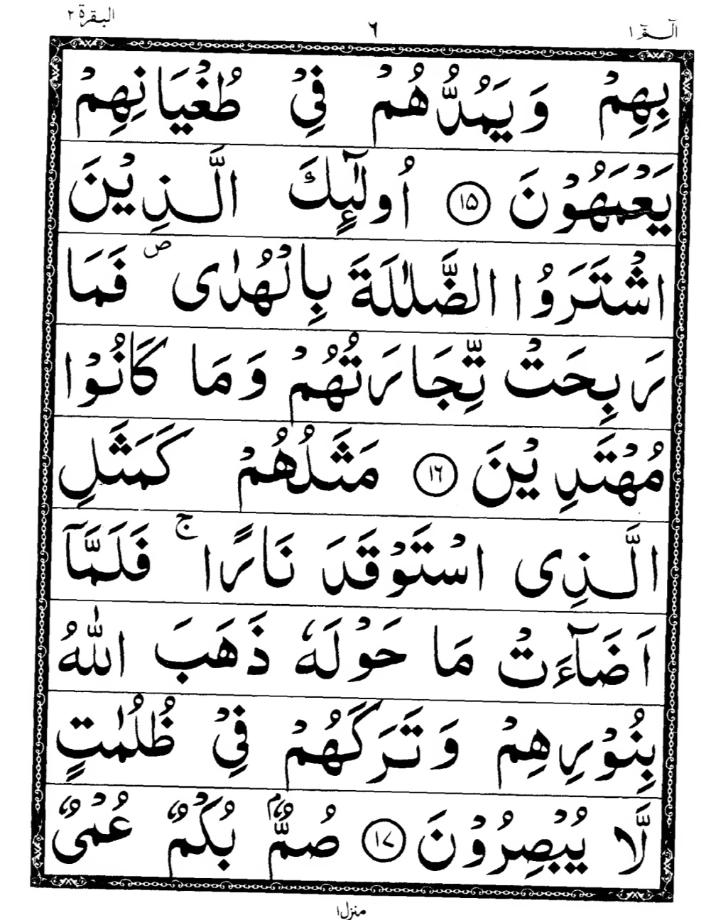 الٓـمّٓ ١ ٦ البقرة ٢
بِهِمْ وَيَمُدُّهُمْ فِيْ طُغْيَانِهِمْ
يَعْمَهُوْنَ ﴿۱۵﴾ اُولٰٓئِكَ الَّذِيْنَ
اشْتَرَوُا الضَّلٰلَةَ بِالْهُدٰى ۪ فَمَا
رَبِحَتْ تِّجَارَتُهُمْ وَمَا كَانُوْا
مُهْتَدِيْنَ ﴿۱۶﴾ مَثَلُهُمْ كَمَثَلِ
الَّذِى اسْتَوْقَدَ نَارًا ۚ فَلَمَّآ
اَضَآءَتْ مَا حَوْلَهٗ ذَهَبَ اللّٰهُ
بِنُوْرِهِمْ وَتَرَكَهُمْ فِيْ ظُلُمٰتٍ
لَّا يُبْصِرُوْنَ ﴿۱۷﴾ صُمٌّۢ بُكْمٌ عُمْىٌ
منزل ١